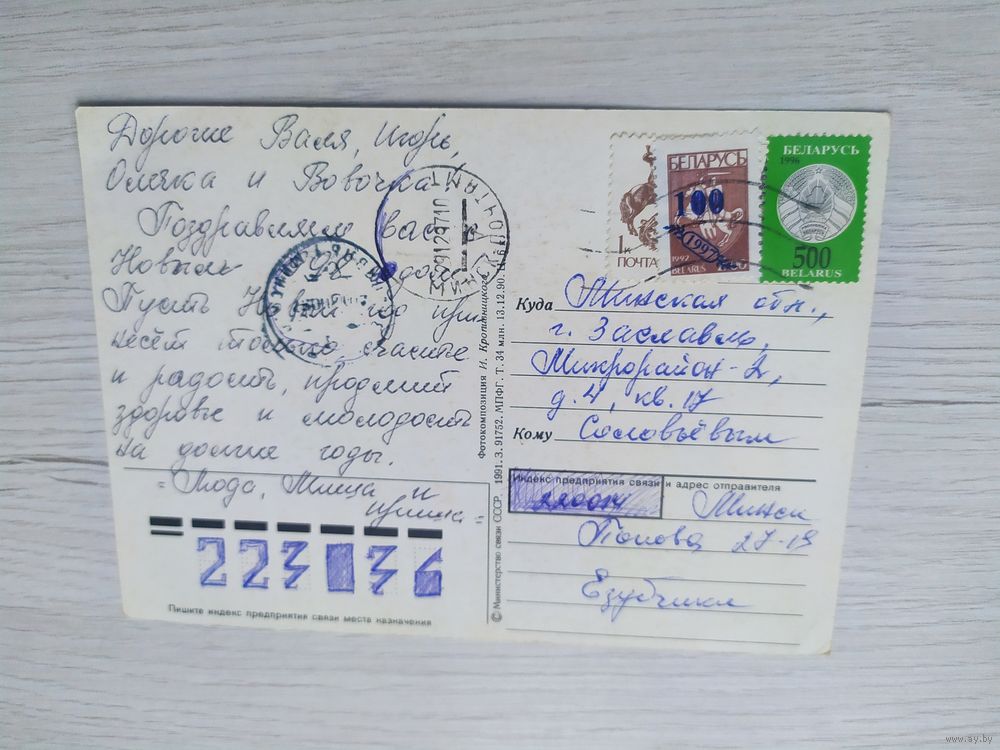 Дорогие Валя, Игорь,
и Вовочка
Поздравляем Вас с
Новым годом
Пусть Новый год при
несёт только счастье
и радость, продлит
здоровье и молодость
на долгие годы.
= Люда, Миша и
Иришка =
223036
Пишите индекс предприятия связи места назначения
МИНСК ПОЧТАМТ
291297 10
© Министерство связи СССР. 1991. З. 91752. МПФГ. Т. 34 млн. 13.12.90. Ц. 6 к.
Фотокомпозиция И. Кропивницкого
1к
ПОЧТА
БЕЛАРУСЬ
100
1992
BELARUS
БЕЛАРУСЬ
1996
500
BELARUS
Куда Минская обл.,
г. Заславль,
Микрорайон-2,
д. 4, кв. 17
Кому Соловьёвым
Индекс предприятия связи и адрес отправителя
220014 Минск
Попова 27-19
Езубчики
www.ay.by